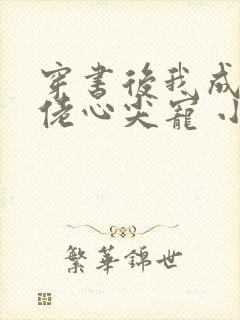 穿書後我成
佬心尖寵 小
繁華錦世